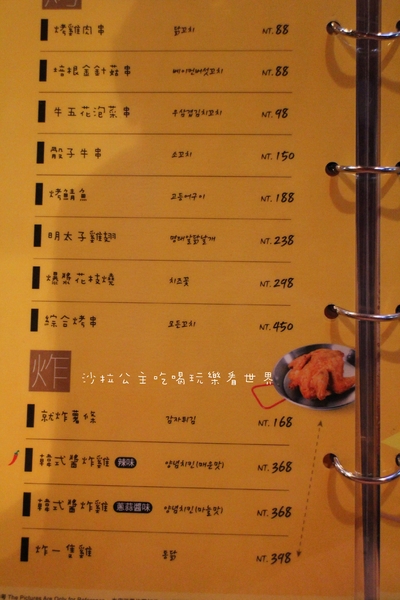 烤雞肉串 닭꼬치 NT. 88
培根金針菇串 베이컨버섯꼬치 NT. 88
牛五花泡菜串 우삼겹김치꼬치 NT. 98
骰子牛串 소꼬치 NT. 150
烤鯖魚 고등어구이 NT. 188
明太子雞翅 명태알닭날개 NT. 238
爆漿花枝燒 치즈꽃 NT. 298
綜合烤串 모듬꼬치 NT. 450
炸
沙拉公主吃喝玩樂看世界
就炸薯條 감자튀김 NT. 168
韓式醬炸雞 辣味 양념치킨(매운맛) NT. 368
韓式醬炸雞 蔥蒜醬味 양념치킨(마늘맛) NT. 368
炸一隻雞 통닭 NT. 398
The Pictures Are Only For Reference